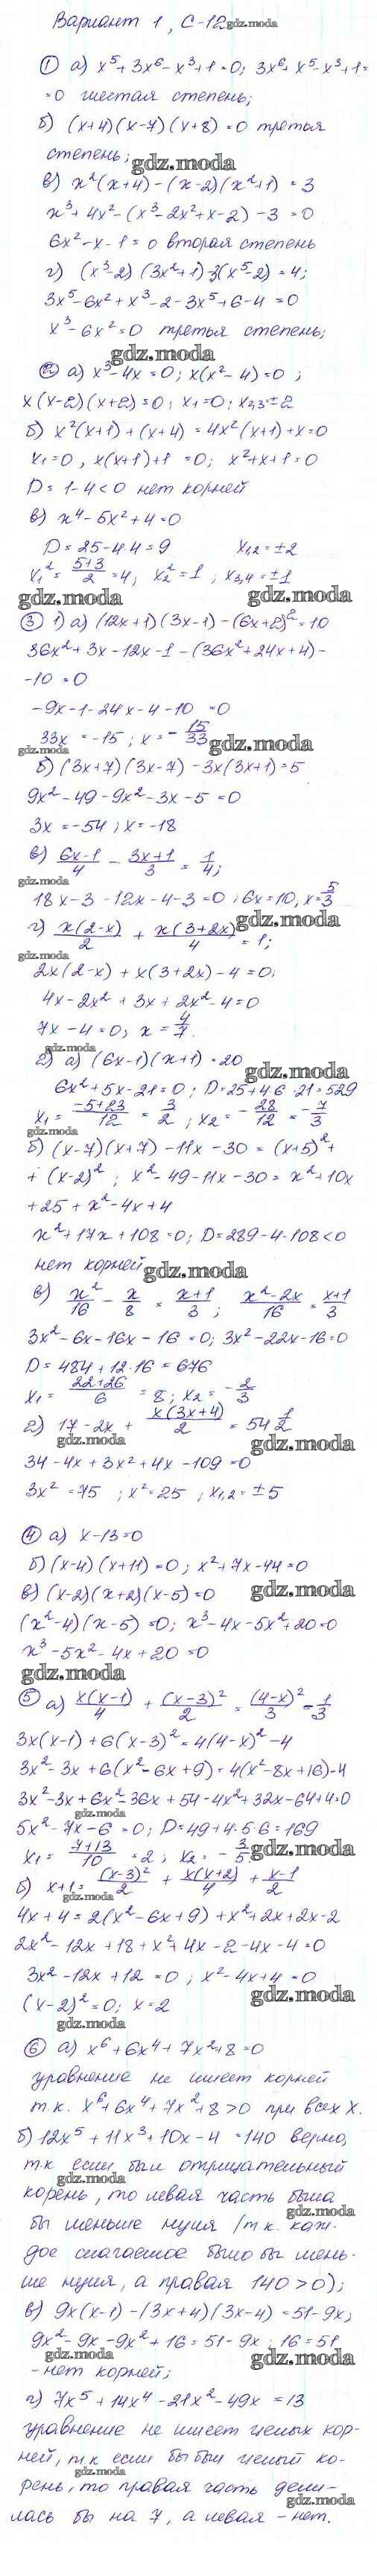 Вариант 1, С-12 gdz.moda
① а) x⁵+3x⁶-x³+1=0; 3x⁶+x⁵-x³+1=
=0 шестая степень;
б) (x+4)(x-7)(x+8)=0 третья
степень; gdz.moda
в) x²(x+4)-(x-2)(x²+1)=3
x³+4x²-(x³-2x²+x-2)-3=0
6x²-x-1=0 вторая степень
г) (x³-2)(3x²+1)-3(x⁵-2)=4;
3x⁵-6x²+x³-2-3x⁵+6-4=0
x³-6x²=0 третья степень;
gdz.moda
② а) x³-4x=0; x(x²-4)=0;
x(x-2)(x+2)=0; x₁=0; x₂,₃=±2
б) x²(x+1)+(x+4)=4x²(x+1)+x=0
x₁=0, x(x+1)+1=0; x²+x+1=0
D=1-4<0 нет корней
в) x⁴-5x²+4=0
D=25-4·4=9 x₁,₂=±2
x₁²=(5+3)/2=4; x₂²=1; x₃,₄=±1
gdz.moda gdz.moda
③ 1) а) (12x+1)(3x-1)-(6x+2)²=10
36x²+3x-12x-1-(36x²+24x+4)-
-10=0
-9x-1-24x-4-10=0
33x=-15; x=-15/33
gdz.moda gdz.moda
б) (3x+7)(3x-7)-3x(3x+1)=5
9x²-49-9x²-3x-5=0
3x=-54; x=-18
в) (6x-1)/4-(3x+1)/3=1/4;
gdz.moda
18x-3-12x-4-3=0; 6x=10, x=5/3
gdz.moda
г) x(2-x)/2+x(3+2x)/4=1;
gdz.moda
2x(2-x)+x(3+2x)-4=0;
4x-2x²+3x+2x²-4=0
7x-4=0; x=4/7.
gdz.moda
2) а) (6x-1)(x+1)=20 gdz.moda
6x²+5x-21=0; D=25+4·6·21=529
x₁=(-5+23)/12=3/2; x₂=-28/12=-7/3
gdz.moda
б) (x-7)(x+7)-11x-30=(x+5)²+
+(x-2)²; x²-49-11x-30=x²+10x
+25+x²-4x+4
x²+17x+108=0; D=289-4·108<0
нет корней gdz.moda
в) x²/16-x/8=(x+1)/3; (x²-2x)/16=(x+1)/3
3x²-6x-16x-16=0; 3x²-22x-16=0
D=484+12·16=676
x₁=(22+26)/6=8; x₂=-2/3
г) 17-2x+x(3x+4)/2=54 1/2
gdz.moda gdz.moda
34-4x+3x²+4x-109=0
3x²=75; x²=25; x₁,₂=±5
④ а) x-13=0
б) (x-4)(x+11)=0; x²+7x-44=0
в) (x-2)(x+2)(x-5)=0 gdz.moda
(x²-4)(x-5)=0; x³-4x-5x²+20=0
x³-5x²-4x+20=0
gdz.moda
⑤ а) x(x-1)/4+(x-3)²/2=(4-x)²/3-1/3
3x(x-1)+6(x-3)²=4(4-x)²-4
3x²-3x+6(x²-6x+9)=4(x²-8x+16)-4
3x²-3x+6x²-36x+54-4x²+32x-64+4=0
gdz.moda
5x²-7x-6=0; D=49+4·5·6=169
x₁=(7+13)/10=2; x₂=-3/5. gdz.moda
б) x+1=(x-3)²/2+x(x+2)/4+(x-1)/2
gdz.moda
4x+4=2(x²-6x+9)+x²+2x+2x-2
2x²-12x+18+x²+4x-2-4x-4=0
3x²-12x+12=0; x²-4x+4=0
(x-2)²=0; x=2 gdz.moda
gdz.moda
⑥ а) x⁶+6x⁴+7x²+8=0
уравнение не имеет корней
т.к. x⁶+6x⁴+7x²+8>0 при всех x.
б) 12x⁵+11x³+10x-4=140 верно,
т.к. если был отрицательный
gdz.moda
корень, то левая часть была
gdz.moda
бы меньше нуля (т.к. каж-
дое слагаемое было бы мень-
ше нуля, а правая 140>0);
в) 9x(x-1)-(3x+4)(3x-4)=51-9x;
9x²-9x-9x²+16=51-9x; 16=51
gdz.moda gdz.moda
-нет корней;
г) 7x⁵+14x⁴-21x²-49x=13
уравнение не имеет целых кор-
ней, т.к. если бы был целый ко-
gdz.moda
рень, то правая часть дели-
gdz.moda
лась бы на 7, а левая - нет.